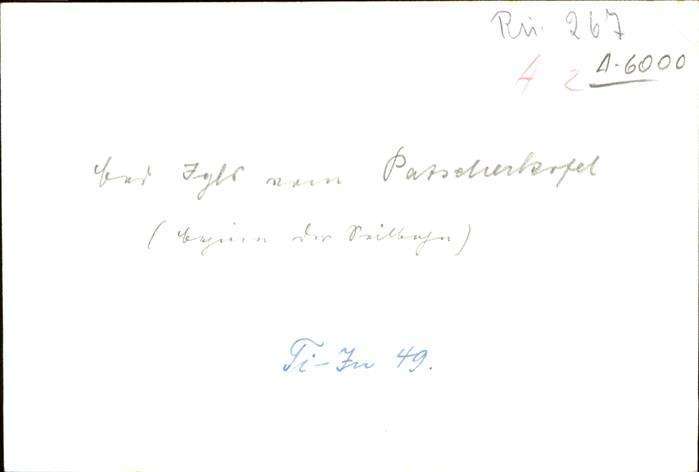 Rü. 267
4 2 A-6000
bei Igls vom Patscherkofel
(beginn der Seilbahn)
Ti-In 49.